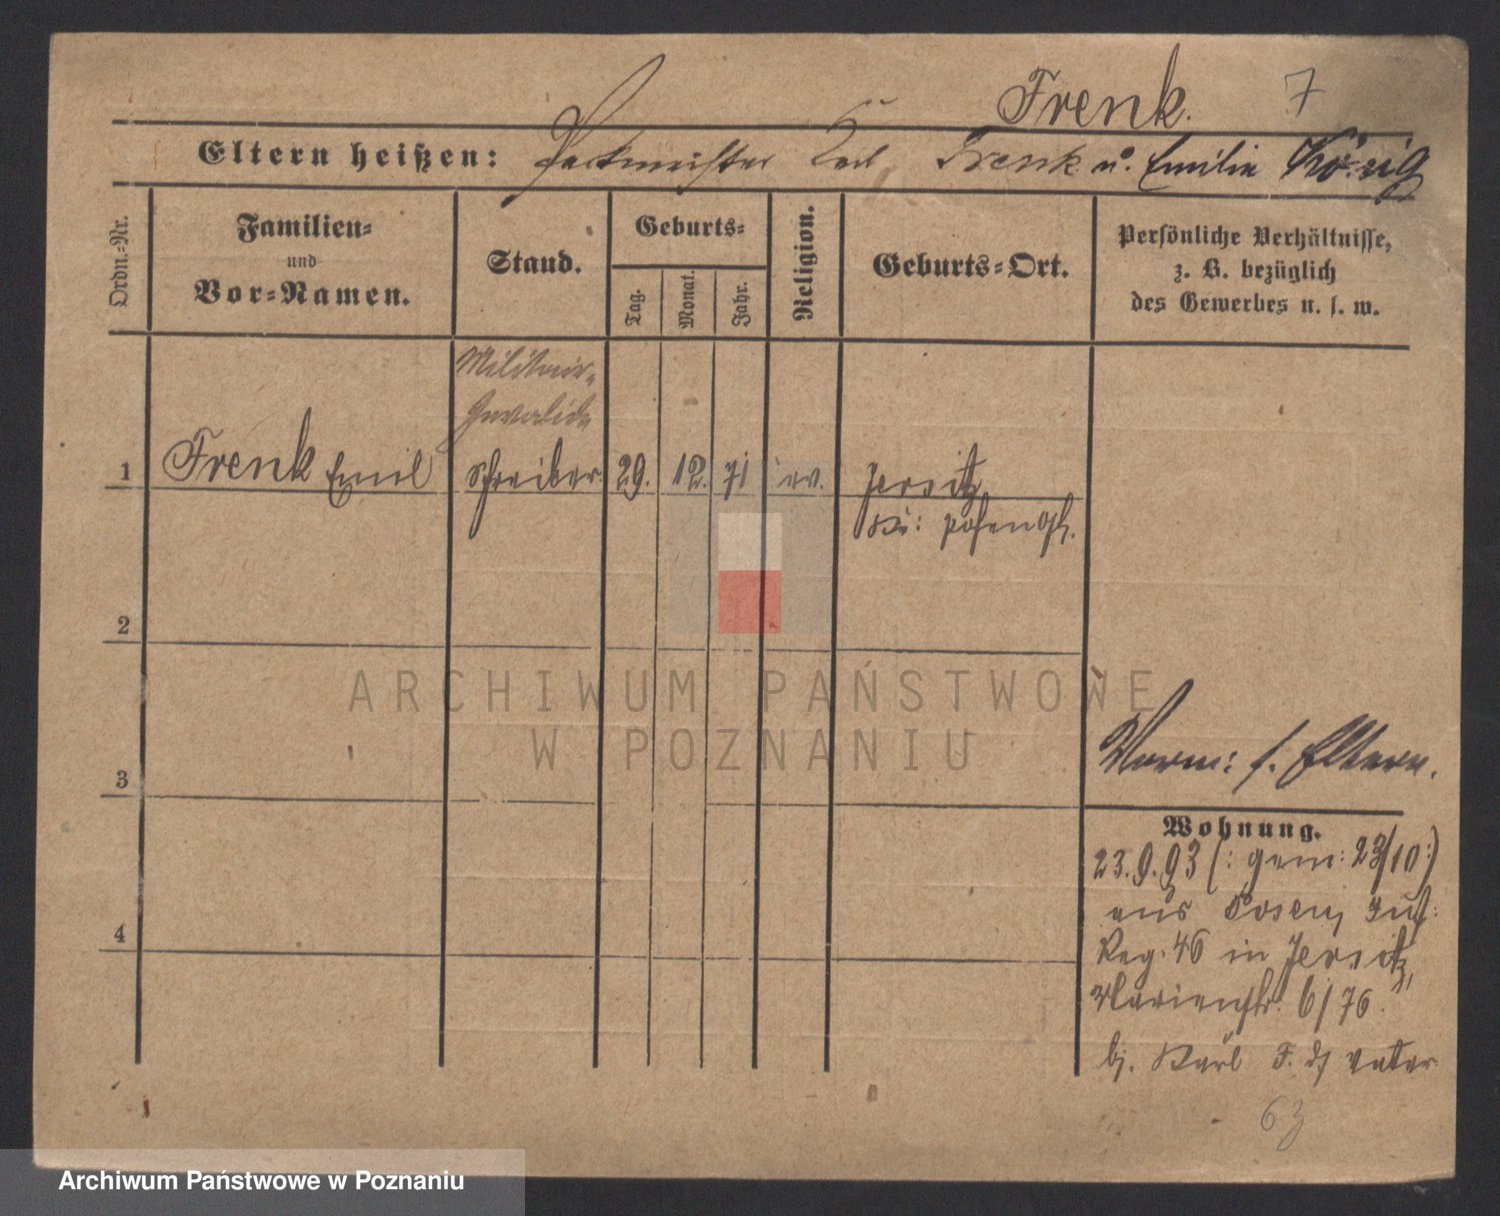 Frenk. 7
Eltern heißen: Packmeister Karl Frenk u. Emilie König
Ordn.-Nr.
Familien-
und
Vor-Namen.
Stand.
Geburts-
Tag.
Monat.
Jahr.
Religion.
Geburts-Ort.
Persönliche Verhältnisse,
z. B. bezüglich
des Gewerbes u. s. w.
Militair-
Invalide
1 Frenk Emil Schreiber 29. 12. 71 ev. Jersitz
Kr: Posen Ost.
2
3
4
Verm: s. Eltern.
Wohnung.
23.9.93 (: gem: 23/10:)
aus Posen, Inf:
Reg. 46 in Jersitz,
Marienstr. 6/76.
bj. Karl F. d/ Vater
63
ARCHIWUM PAŃSTWOWE
W POZNANIU
Archiwum Państwowe w Poznaniu